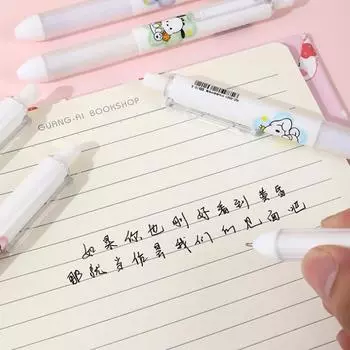 GUANG-AI BOOKSHOP
如果你也刚好看到黄昏
那就当作是我们们见面吧